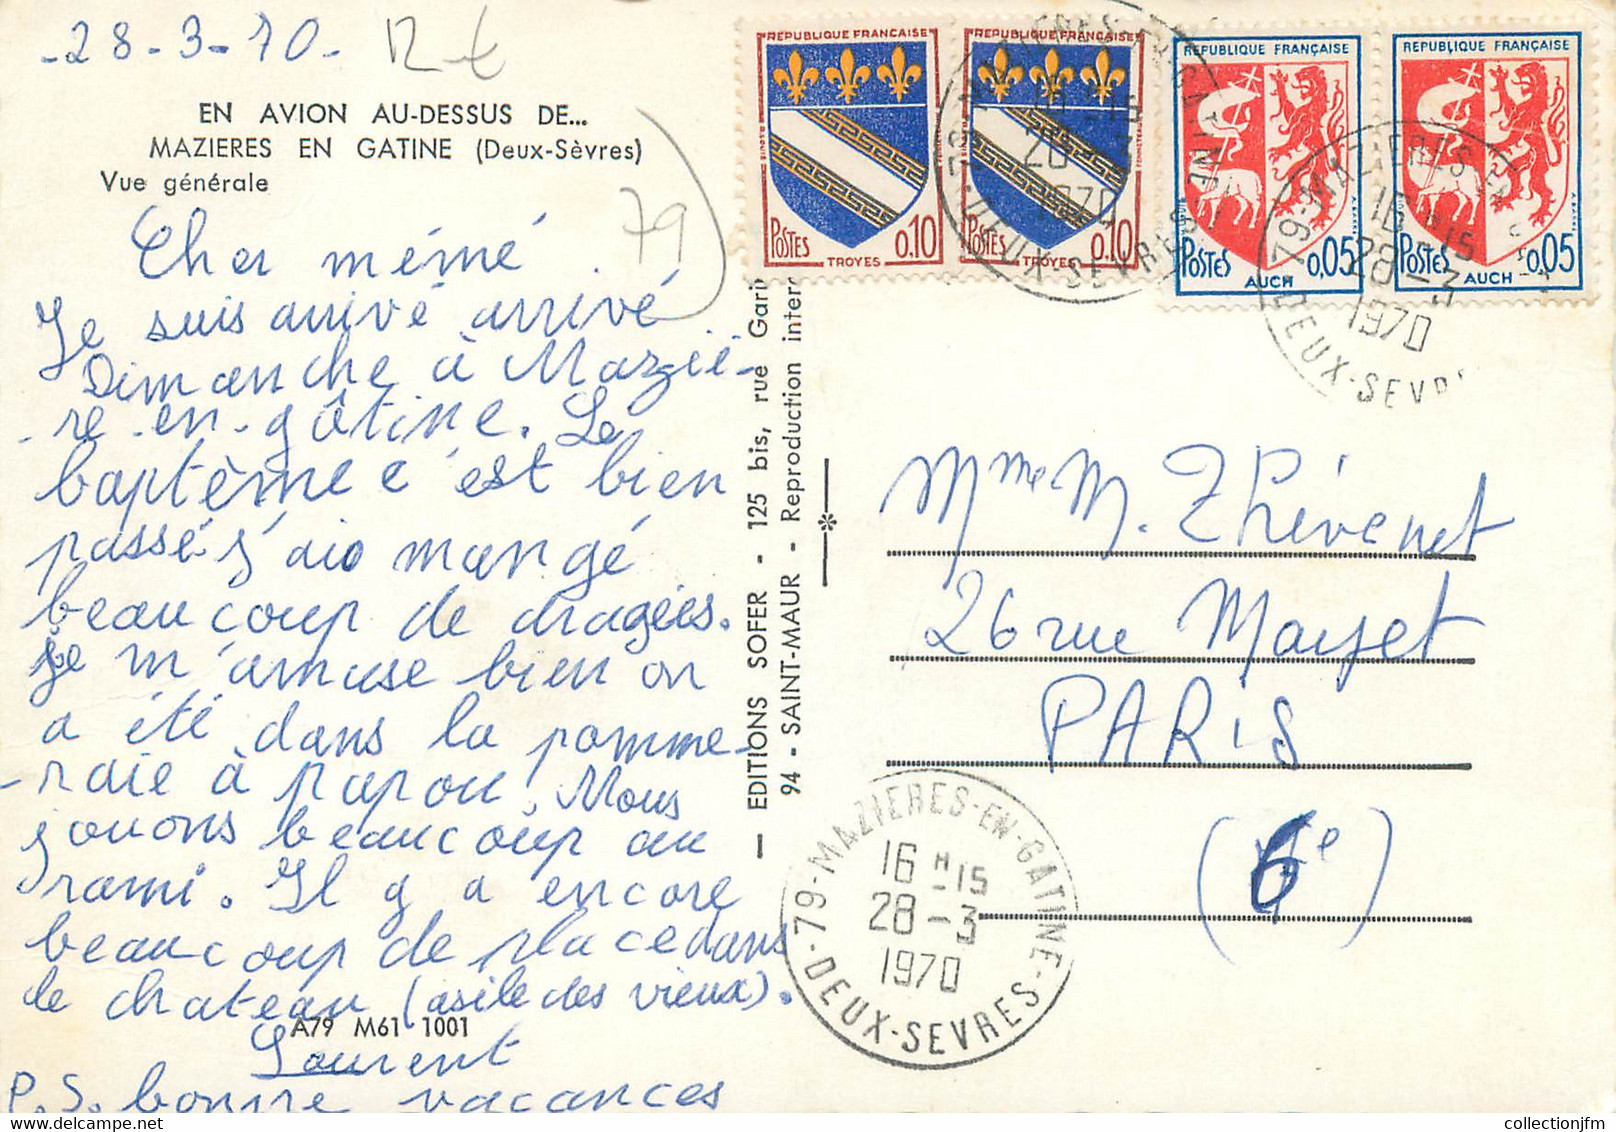 -28-3-70-
EN AVION AU-DESSUS DE...
MAZIERES EN GATINE (Deux-Sèvres)
Vue générale
79
Cher mémé.
Je suis arrivé arrivé
Dimanche à Maziè-
-re-en-gâtine. Le
baptême c'est bien
passé j'ais mangé
beaucoup de dragées.
Je m'amuse bien on
a été dans la pomme-
-raie à papou. Nous
jouons beaucoup au
rami. Il y a encore
beaucoup de place dans
le chateau (asile des vieux).
A79 M61 1001
Laurent
P.S. bonne vacances
EDITIONS SOFER - 125 bis, rue Gari
94 - SAINT-MAUR - Reproduction inter
REPUBLIQUE FRANCAISE
POSTES 0,10
TROYES
REPUBLIQUE FRANCAISE
POSTES 0,10
TROYES
REPUBLIQUE FRANÇAISE
POSTES 0,05
AUCH
REPUBLIQUE FRANÇAISE
POSTES 0,05
AUCH
79-MAZIERES-EN-GATINE
16 H 15
28-3
1970
DEUX-SEVRES
79-MAZIERES-EN
16 H 15
28-3
1970
DEUX-SEVR
Mme M. Thévenet
26 rue Mayet
PARIS
(6e)
79-MAZIERES-EN-GATINE
16 H 15
28-3
1970
DEUX-SEVRES
www.collectionjfm.fr